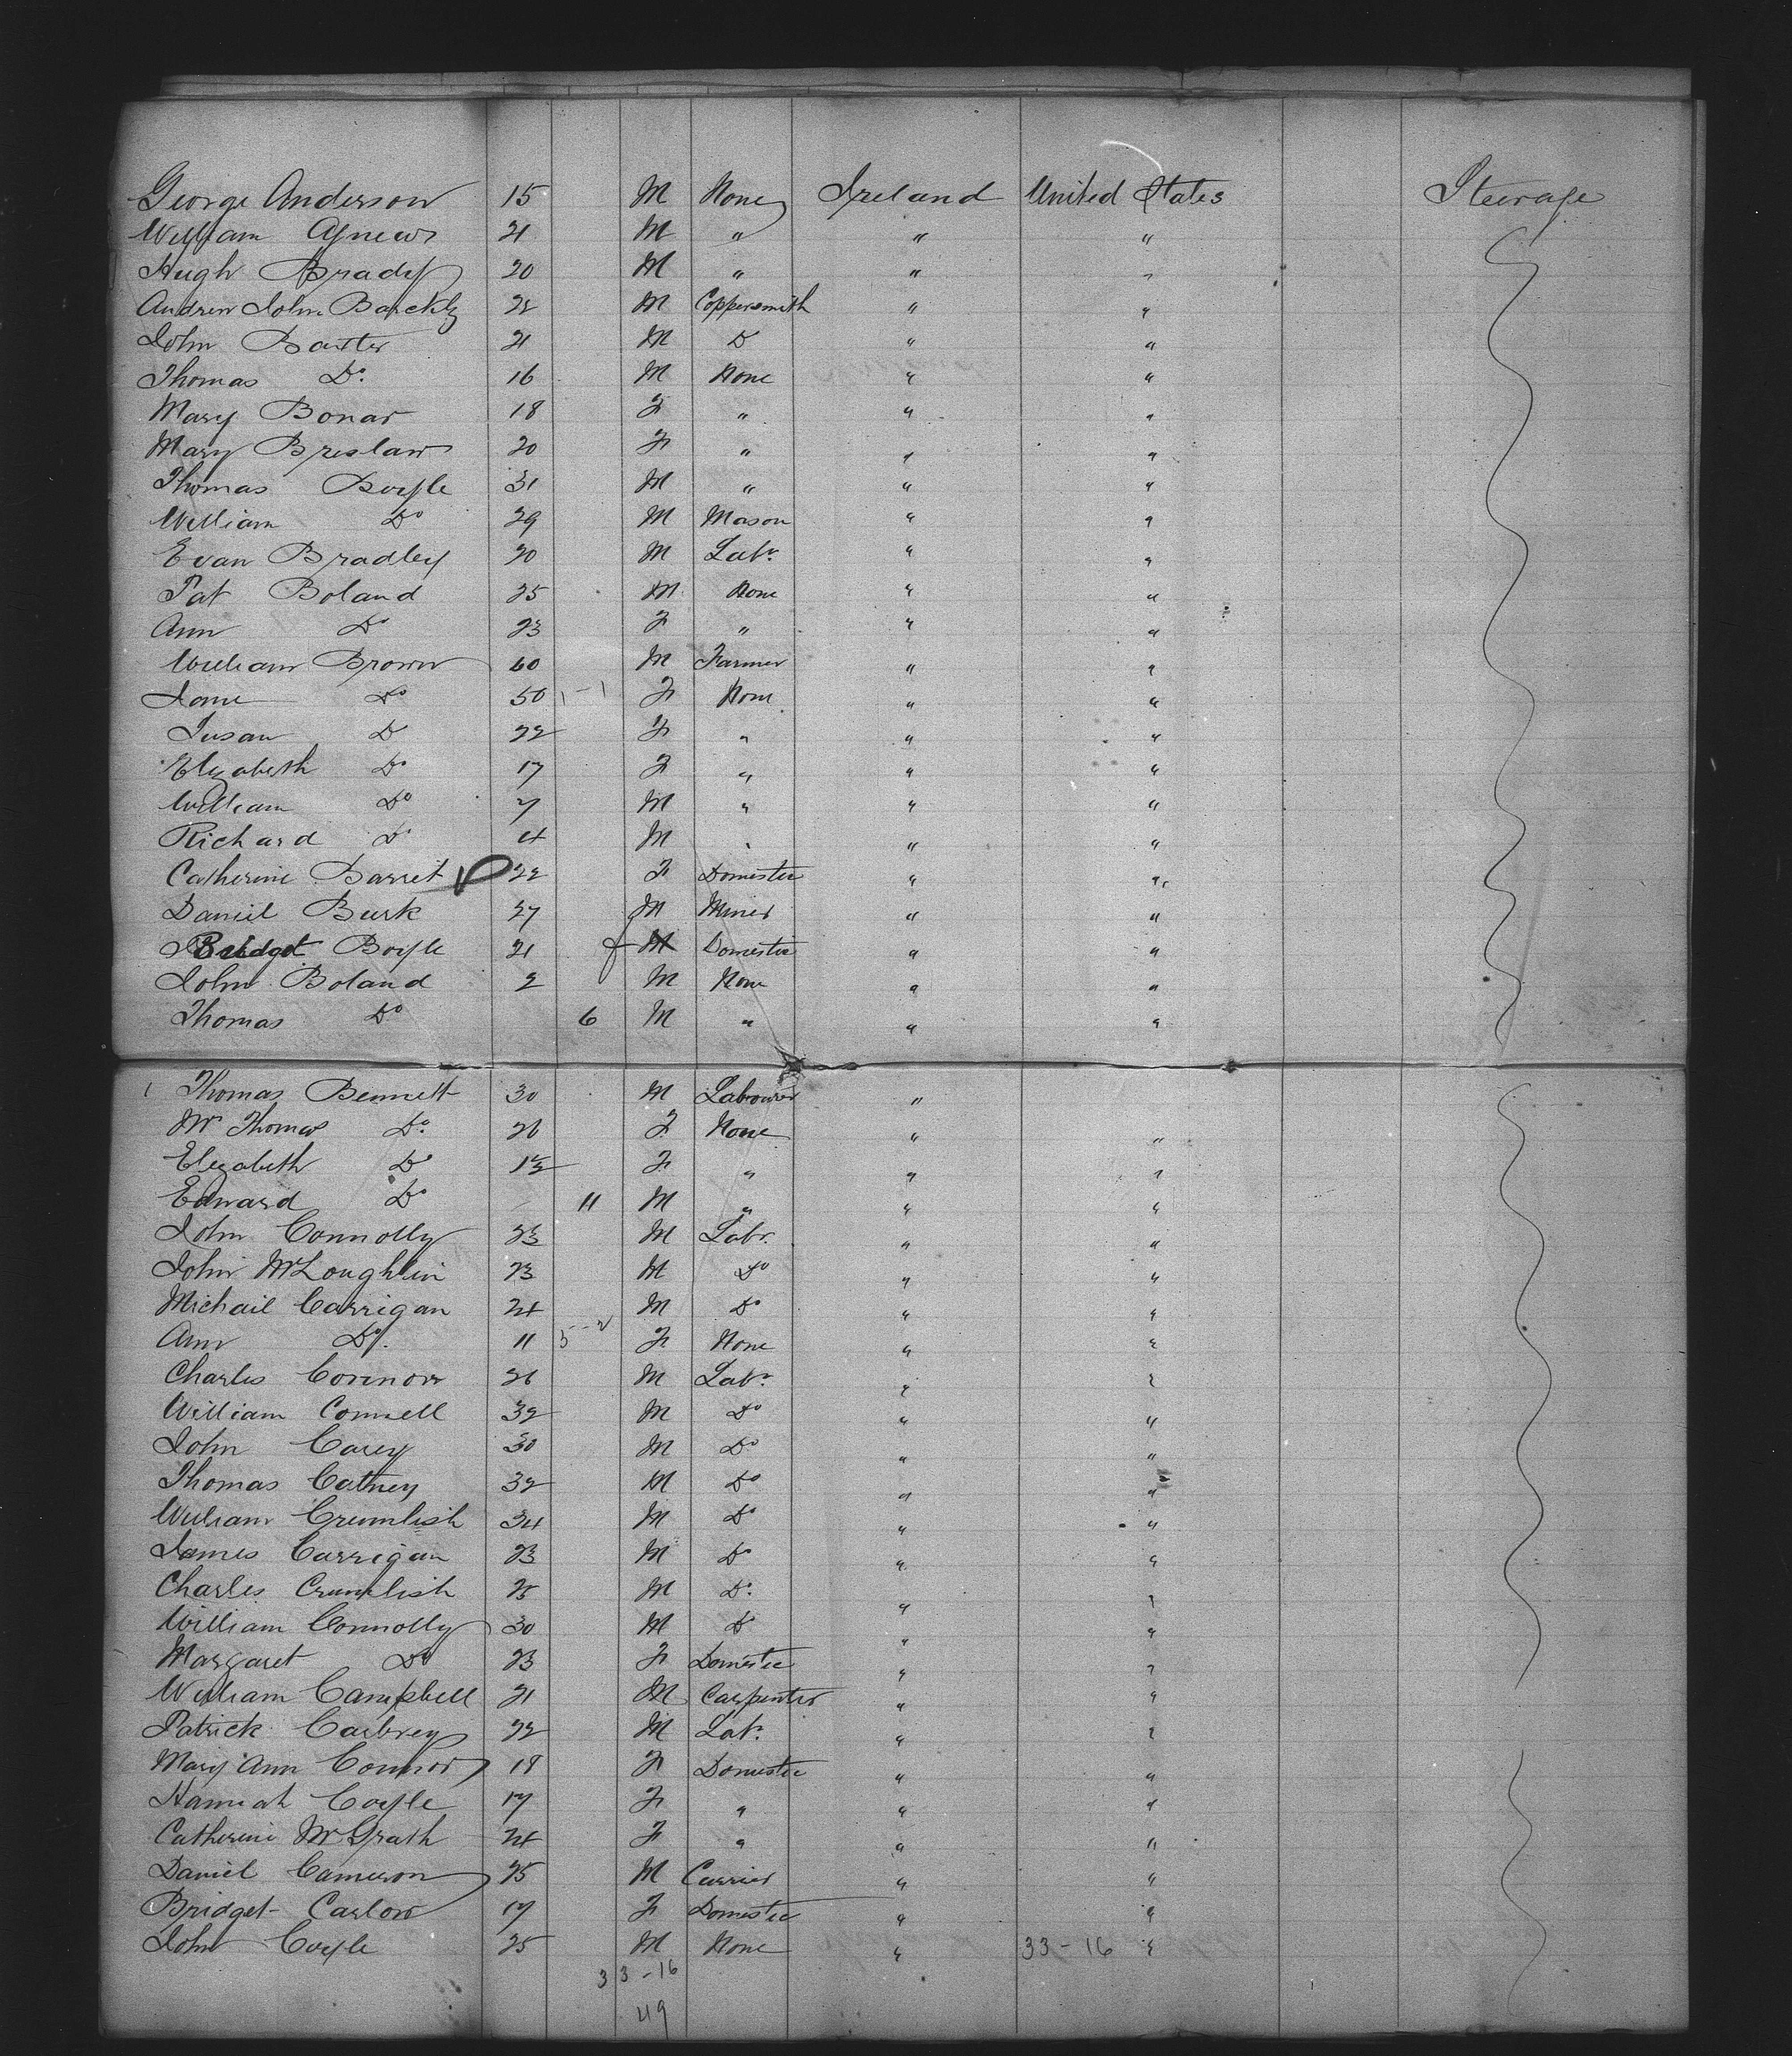 George Anderson 15 M None Ireland United States Steerage
William Agnew 21 M " " "
Hugh Brady 20 M " " "
Andrew John Barckly 22 M Coppersmith " "
John Baxter 21 M D " "
Thomas Do. 16 M None " "
Mary Bonar 18 F " " "
Mary Breslaw 20 F " " "
Thomas Boyle 31 M " " "
William Do 29 M Mason " "
Evan Bradley 20 M Labr. " "
Pat Boland 25 M None " "
Ann Do 23 F " " "
William Brown 60 M Farmer " "
Jane Do 50 1-1 F None " "
Susan D 22 F " " "
Elizabeth Do 17 F " " "
William Do 7 M " " "
Richard Do 4 M " " "
Catherine Barret 22 F Domestic " "
Daniel Burk 27 M Miner " "
Bridget Boyle 21 f M Domestic " "
John Boland 2 M None " "
Thomas Do 6 M " " "
Thomas Bennett 30 M Labourer "
Mrs Thomas Do. 26 F None " "
Elizabeth Do 1½ F " " "
Edward Do 11 M " " "
John Connolly 23 M Labr. " "
John McLoughlin 23 M Do " "
Michail Carrigan 24 M Do " "
Ann Do. 11 5-2 F None " "
Charles Connor 26 M Labr. " "
William Connell 32 M Do " "
John Carey 30 M Do " "
Thomas Catney 32 M Do " "
William Crumlish 34 M Do " "
James Carrigan 23 M Do " "
Charles Crumlish 25 M Do. " "
William Connolly 30 M Do " "
Margaret Do 23 F Domestic " "
William Campbell 21 M Carpenter " "
Patrick Carbrey 22 M Labr. " "
Mary Ann Connor 18 F Domestic " "
Hannah Coyle 17 F " " "
Catherine McGrath 24 F " " "
Daniel Cameron 25 M Currier " "
Bridget Carlow 17 F Domestic " "
John Coyle 25 M None " 33-16 "
33-16
49